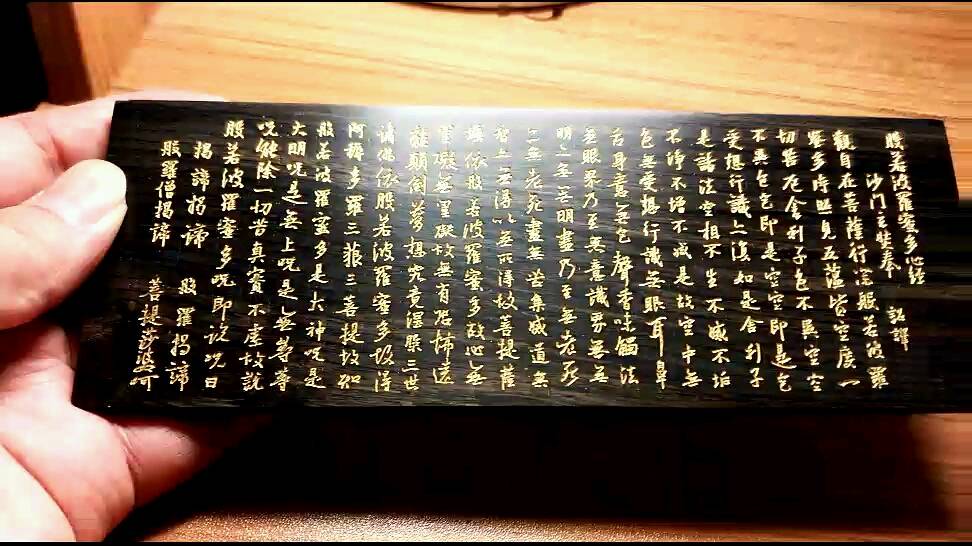 般若波羅蜜多心經
沙門玄奘奉 詔譯
觀自在菩薩行深般若波羅
蜜多時照見五蘊皆空度一
切苦厄舍利子色不異空空
不異色色即是空空即是色
受想行識亦復如是舍利子
是諸法空相不生不滅不垢
不淨不增不減是故空中無
色無受想行識無眼耳鼻
舌身意無色聲香味觸法
無眼界乃至無意識界無無
明亦無無明盡乃至無老死
亦無老死盡無苦集滅道無
智亦無得以無所得故菩提薩
埵依般若波羅蜜多故心無
罣礙無罣礙故無有恐怖遠
離顛倒夢想究竟涅槃三世
諸佛依般若波羅蜜多故得
阿耨多羅三藐三菩提故知
般若波羅蜜多是大神咒是
大明咒是無上咒是無等等
咒能除一切苦真實不虛故說
般若波羅蜜多咒即說咒曰
揭諦揭諦 般羅揭諦
般羅僧揭諦 菩提莎婆呵